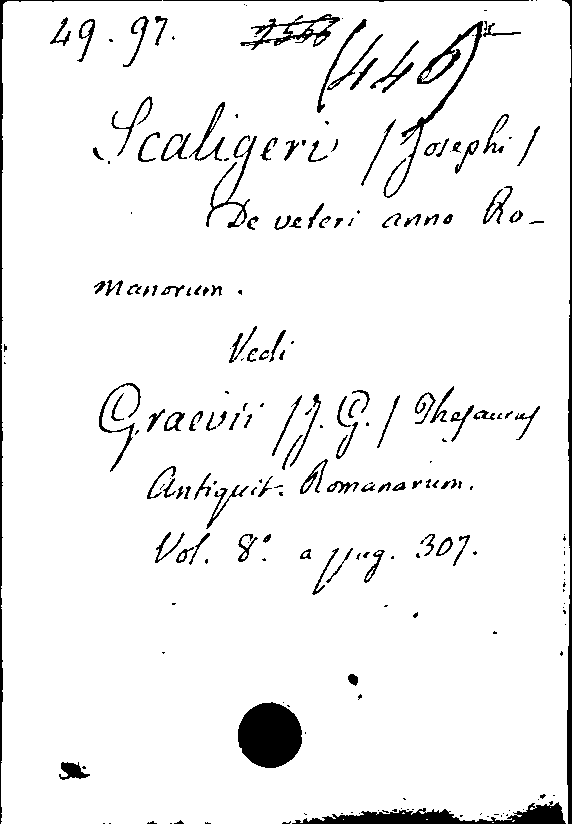 49.97.
(446)
Scaligeri /Josephi/
De veteri anno Ro-
manorum.
Vedi
Graevii /J. G./ Thesaurus
Antiquit. Romanarum.
Vol. 8º a pag. 307.